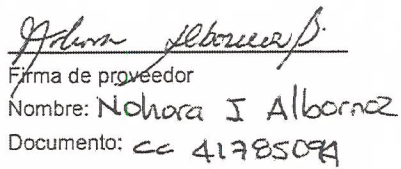 Nohora Albornoz B.
Firma de proveedor
Nombre: Nohora I Albornoz
Documento: cc 41785094